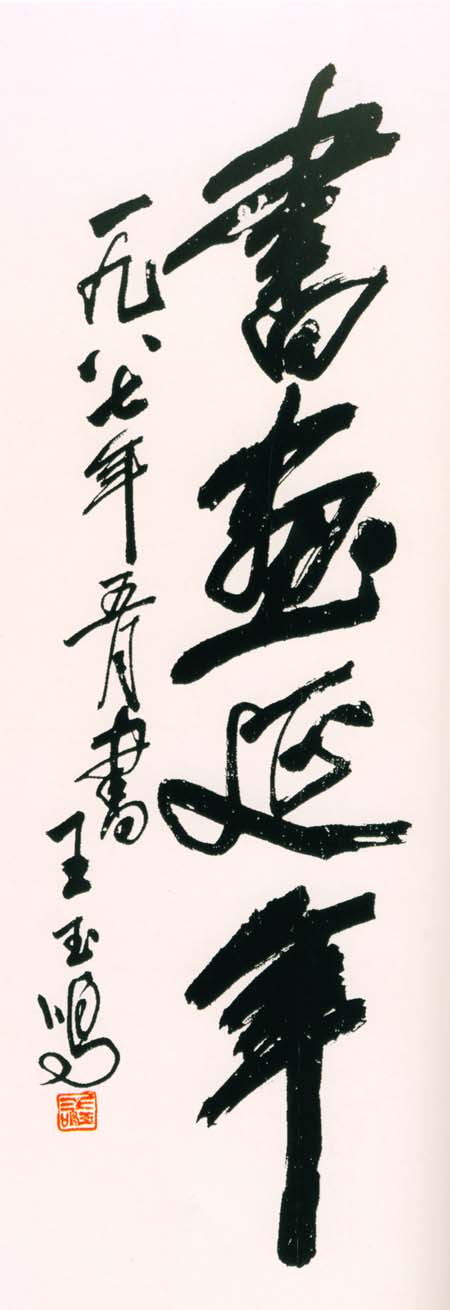 書畫延年
一九八七年五月書王玉鳴